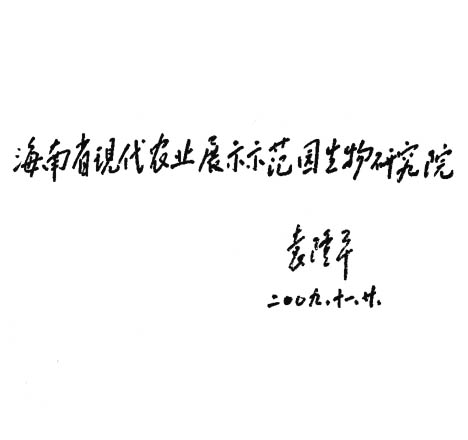 海南省现代农业展示示范园生物研究院
袁隆平
二〇〇九.十一.廿.